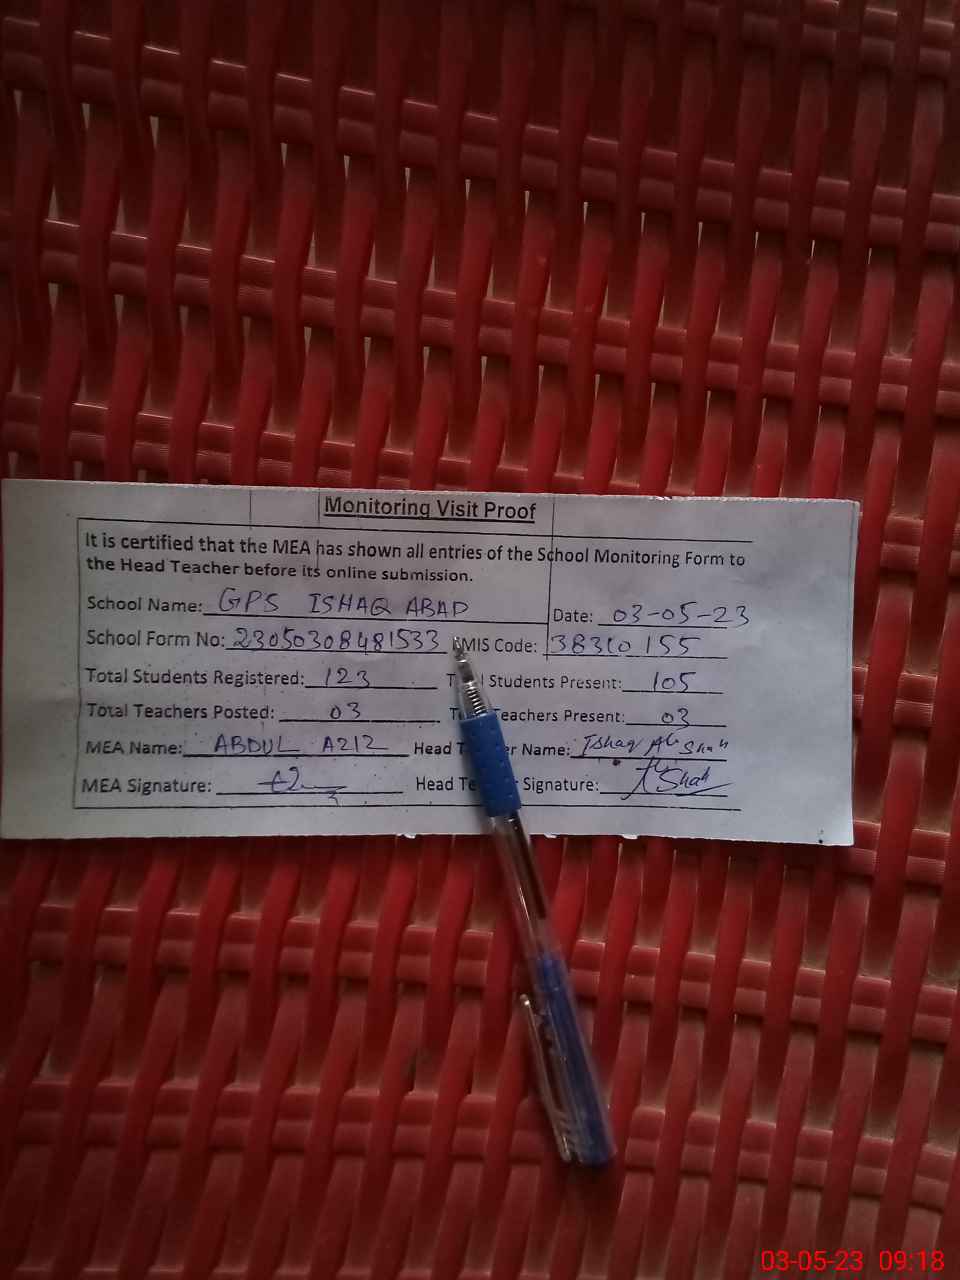 Monitoring Visit Proof
It is certified that the MEA has shown all entries of the School Monitoring Form to
the Head Teacher before its online submission.
School Name: GPS ISHAQ ABAD Date: 03-05-23
School Form No: 23050308481533 MIS Code: 38310155
Total Students Registered: 123 Students Present: 105
Total Teachers Posted: 03 Teachers Present: 03
MEA Name: ABDUL AZIZ Head Name: Ishaq Ali Shah
MEA Signature: Head Signature: Shah
03-05-23 09:18